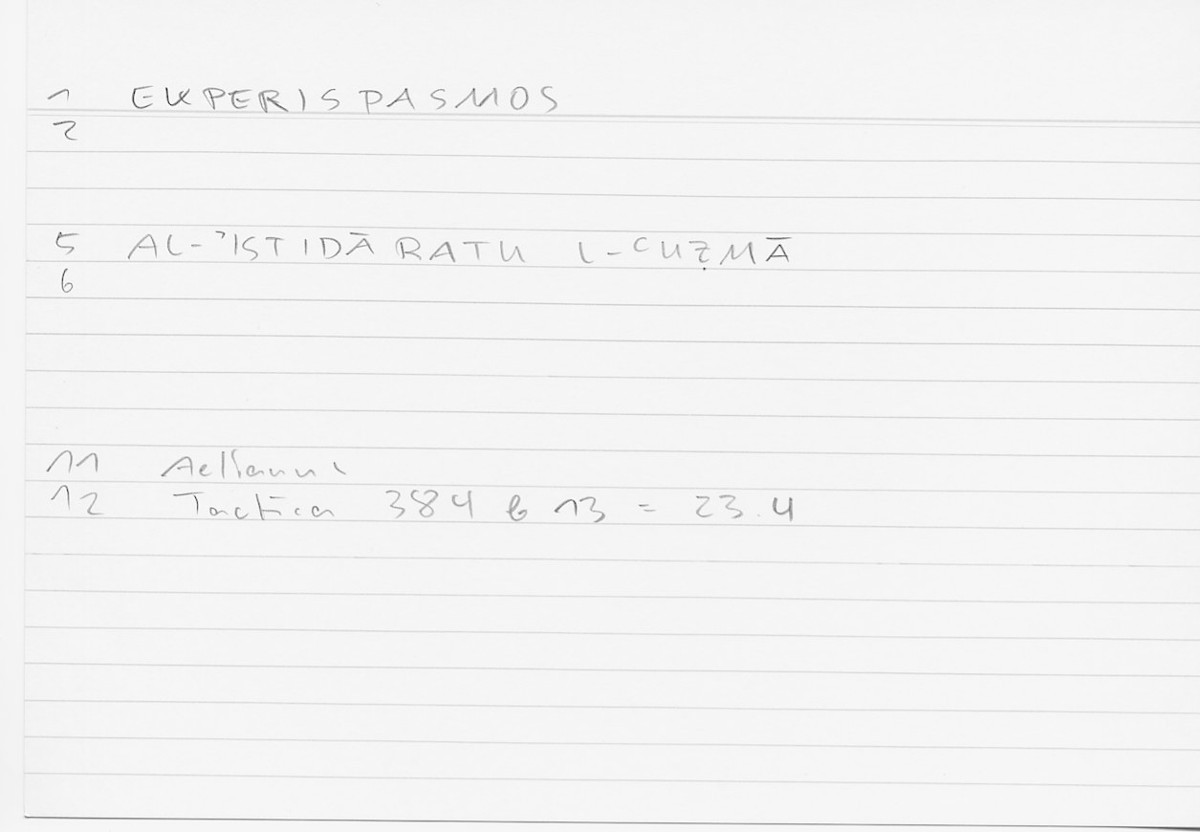 1 EKPERISPASMOS
2
5 AL-ʾISTIDĀRATU L-ʿUẒMĀ
6
11 Aeliani
12 Tactica 384 b 13 = 23.4